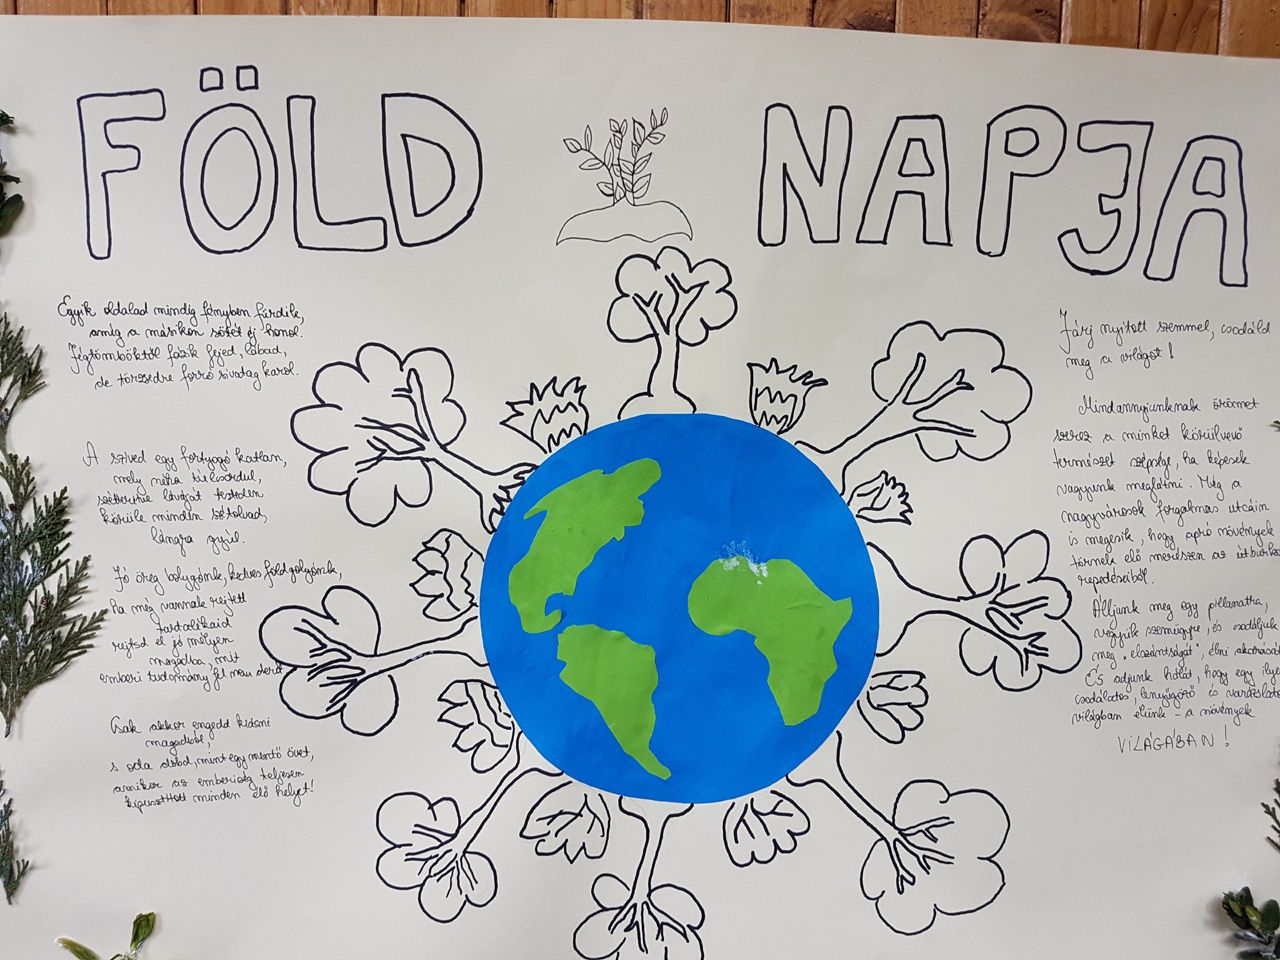 FÖLD NAPJA
Egyik oldalad mindig fényben fürdik,
amíg a másikon sötét éj honol.
Jégtömböktől fázik fejed, lábad,
de törzsedre forró sivatag karol.
A szíved egy fortyogó katlan,
mely néha túlcsordul,
szétterítve láváját testeden
körüle minden szétolvad,
lángra gyúl.
Jó öreg bolygónk, kedves földgolyónk,
ha még vannak rejtett
tartalékaid
rejtsd el jó mélyen
magadba, mit
emberi tudomány fel nem derít
Csak akkor engedd kiásni
magadból,
s oda dobd, mint egy mentő övet,
amikor az emberiség teljesen
kipusztított minden élő helyet!
Járj nyitott szemmel, csodáld
meg a világot!
Mindannyiunknak örömet
szerez a minket körülvevő
természet szépsége, ha képesek
vagyunk meglátni. Még a
nagyvárosok forgalmas utcáin
is megesik, hogy apró növények
törnek elő merészen az útburko
repedéseiből.
Álljunk meg egy pillanatra,
vegyük szemügyre, és csodáljuk
meg „elszántságát", élni akarását
És adjunk hálát, hogy egy ilye
csodálatos, lenyűgöző és varázslato
világban élünk - a növények
VILÁGÁBAN!